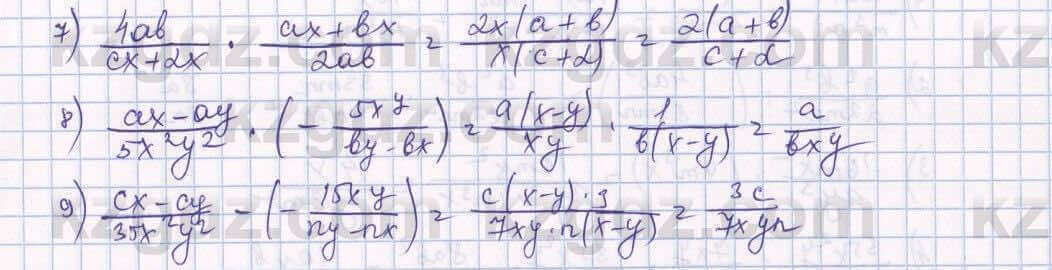 7) 4ab/(cx+2x) · (ax+bx)/2ab = 2x(a+b)/x(c+2) = 2(a+b)/(c+d)
8) (ax-ay)/5x²y² · (- 5xy/(by-bx)) = a(x-y)/xy · 1/b(x-y) = a/bxy
9) (cx-cy)/35x²y² - (- 15xy/(ny-nx)) = c(x-y)·3/7xy·n(x-y) = 3c/7xyn